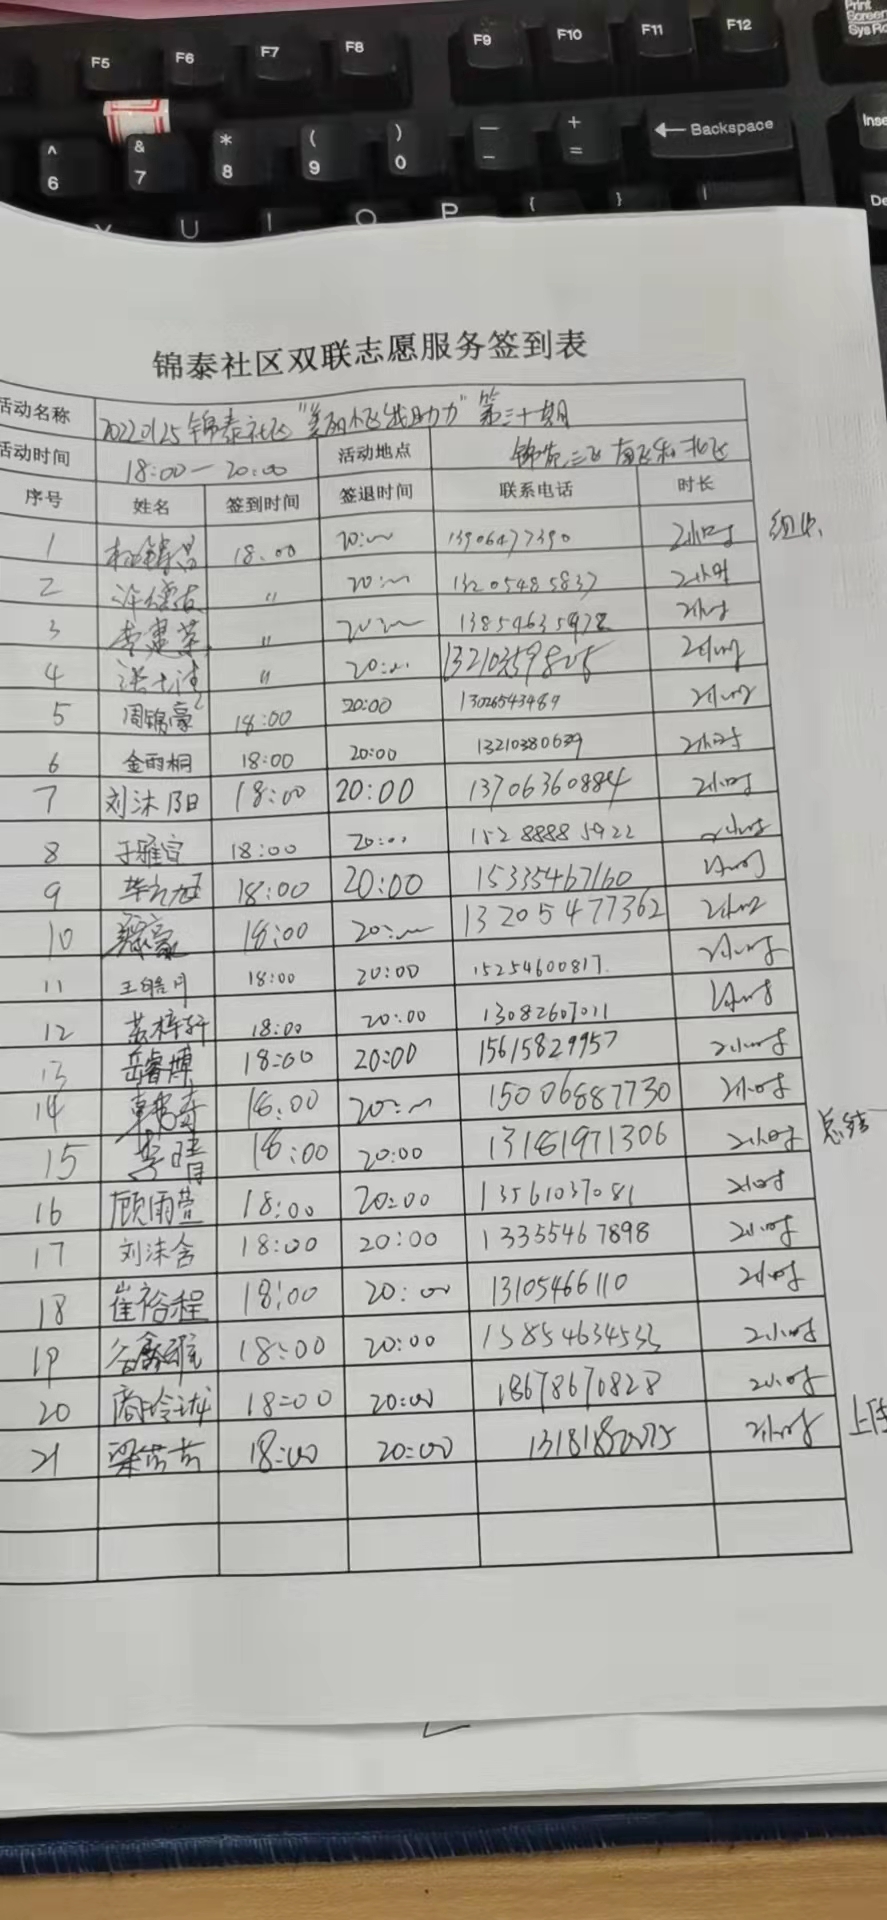 F5 F6 F7 F8 F9 F10 F11 F12 Print Screen SysRq
^ 6 & 7 * 8 ( 9 ) 0 — - + = ← Backspace Inse
Y U I O P { } | De
锦泰社区双联志愿服务签到表
活动名称 20220125 锦泰社区 "美丽小区我助力" 第三十期
活动时间 18:00—20:00 活动地点 锦苑三区 南区和北区
序号 姓名 签到时间 签退时间 联系电话 时长
1 18:00 20:00 13906477390 2小时 组织
2 〃 20:00 13205485837 2小时
3 李建荣 〃 20:00 13854635978 2小时
4 〃 20:00 2小时
5 周锦豪 18:00 20:00 13026543489 2小时
6 金雨桐 18:00 20:00 13210380639 2小时
7 刘沐阳 18:00 20:00 13706360884 2小时
8 于雅宜 18:00 20:00 15288885922 2小时
9 18:00 20:00 15335467160 2小时
10 18:00 20:00 13205477362 2小时
11 王皓月 18:00 20:00 15254600817 2小时
12 18:00 20:00 13082607011 2小时
13 岳睿博 18:00 20:00 15615829957 2小时
14 18:00 20:00 15006887730 2小时
15 李晴 18:00 20:00 13181971306 2小时 总结
16 顾雨萱 18:00 20:00 13561037081 2小时
17 刘沫含 18:00 20:00 13355467898 2小时
18 崔裕程 18:00 20:00 13105466110 2小时
19 18:00 20:00 15854634533 2小时
20 商玲珑 18:00 20:00 18678670828 2小时
21 18:00 20:00 2小时 上传